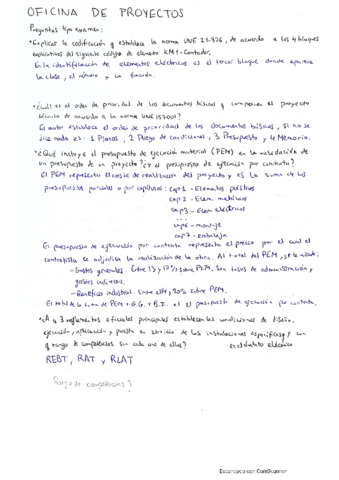 OFICINA DE PROYECTOS
Preguntas tipo examen:
• Explicar la codificación q establece la norma UNE de acuerdo a los 4 bloques
explicativos del siguiente código de elemento KM1-Contador.
En la identificación de elementos eléctricos es el tercer bloque donde aparece
la clase, el número y la función.
• ¿Cuál es el orden de prioridad de los documentos básicos q componen el proyecto
técnico de acuerdo a la norma UNE 157001?
El autor establece el orden de prioridad de los documentos básicos, si no se
dice nada es: 1 Planos, 2 Pliego de condiciones, 3 Presupuesto y 4 Memoria.
• ¿Qué incluye el presupuesto de ejecución material (PEM) en la realización de
un presupuesto de un proyecto? ¿y el presupuesto de ejecución por contrata?
El PEM representa el coste de realización del proyecto y es la suma de los
presupuestos parciales o por capítulos: cap 1 - Elementos plásticos
cap 2 - Elem. metálicos
cap 3 - Elem. eléctricos
cap 6 - montaje
cap 7 - embalaje
El presupuesto de ejecución por contrata representa el precio por el cual el
contratista se adjudica la realización de la obra. Al total del PEM, se le añade:
- Gastos generales. Entre 13 y 17% sobre PEM. Son tasas de administración y
gastos indirectos.
- Beneficio industrial. Entre 20% sobre PEM.
El total de la suma de PEM + G.G. + B.I. es el presupuesto de ejecución por contrata.
• ¿Q 3 reglamentos oficiales principales establecen las condiciones de diseño,
ejecución, aplicación y puesta en servicio de las instalaciones específicas y con
q rango de competencias son cada uno de ellos? en el ámbito eléctrico
REBT, RAT y RLAT
Rango de competencias?
Escaneado con CamScanner